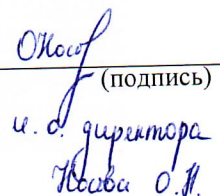 ОНосов
(подпись)
и. о. директора
Носова О.Н.